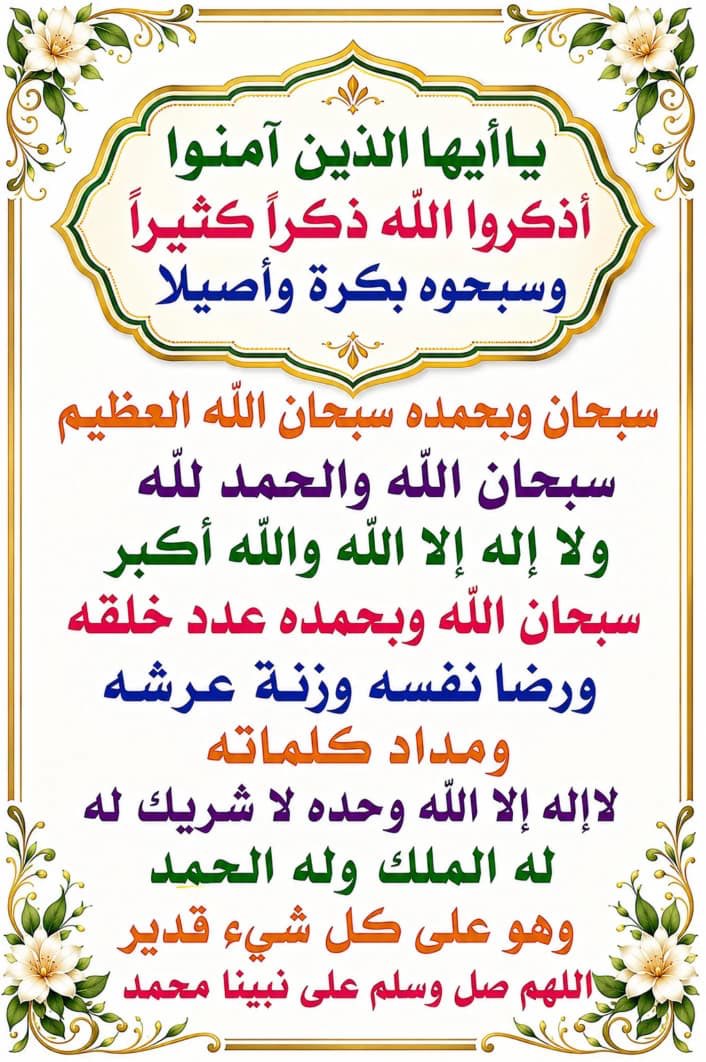 ياأيها الذين آمنوا
أذكروا الله ذكراً كثيراً
وسبحوه بكرة وأصيلا
سبحان وبحمده سبحان الله العظيم
سبحان الله والحمد لله
ولا إله إلا الله والله أكبر
سبحان الله وبحمده عدد خلقه
ورضا نفسه وزنة عرشه
ومداد كلماته
لاإله إلا الله وحده لا شريك له
له الملك وله الحمد
وهو على كل شيء قدير
اللهم صل وسلم على نبينا محمد